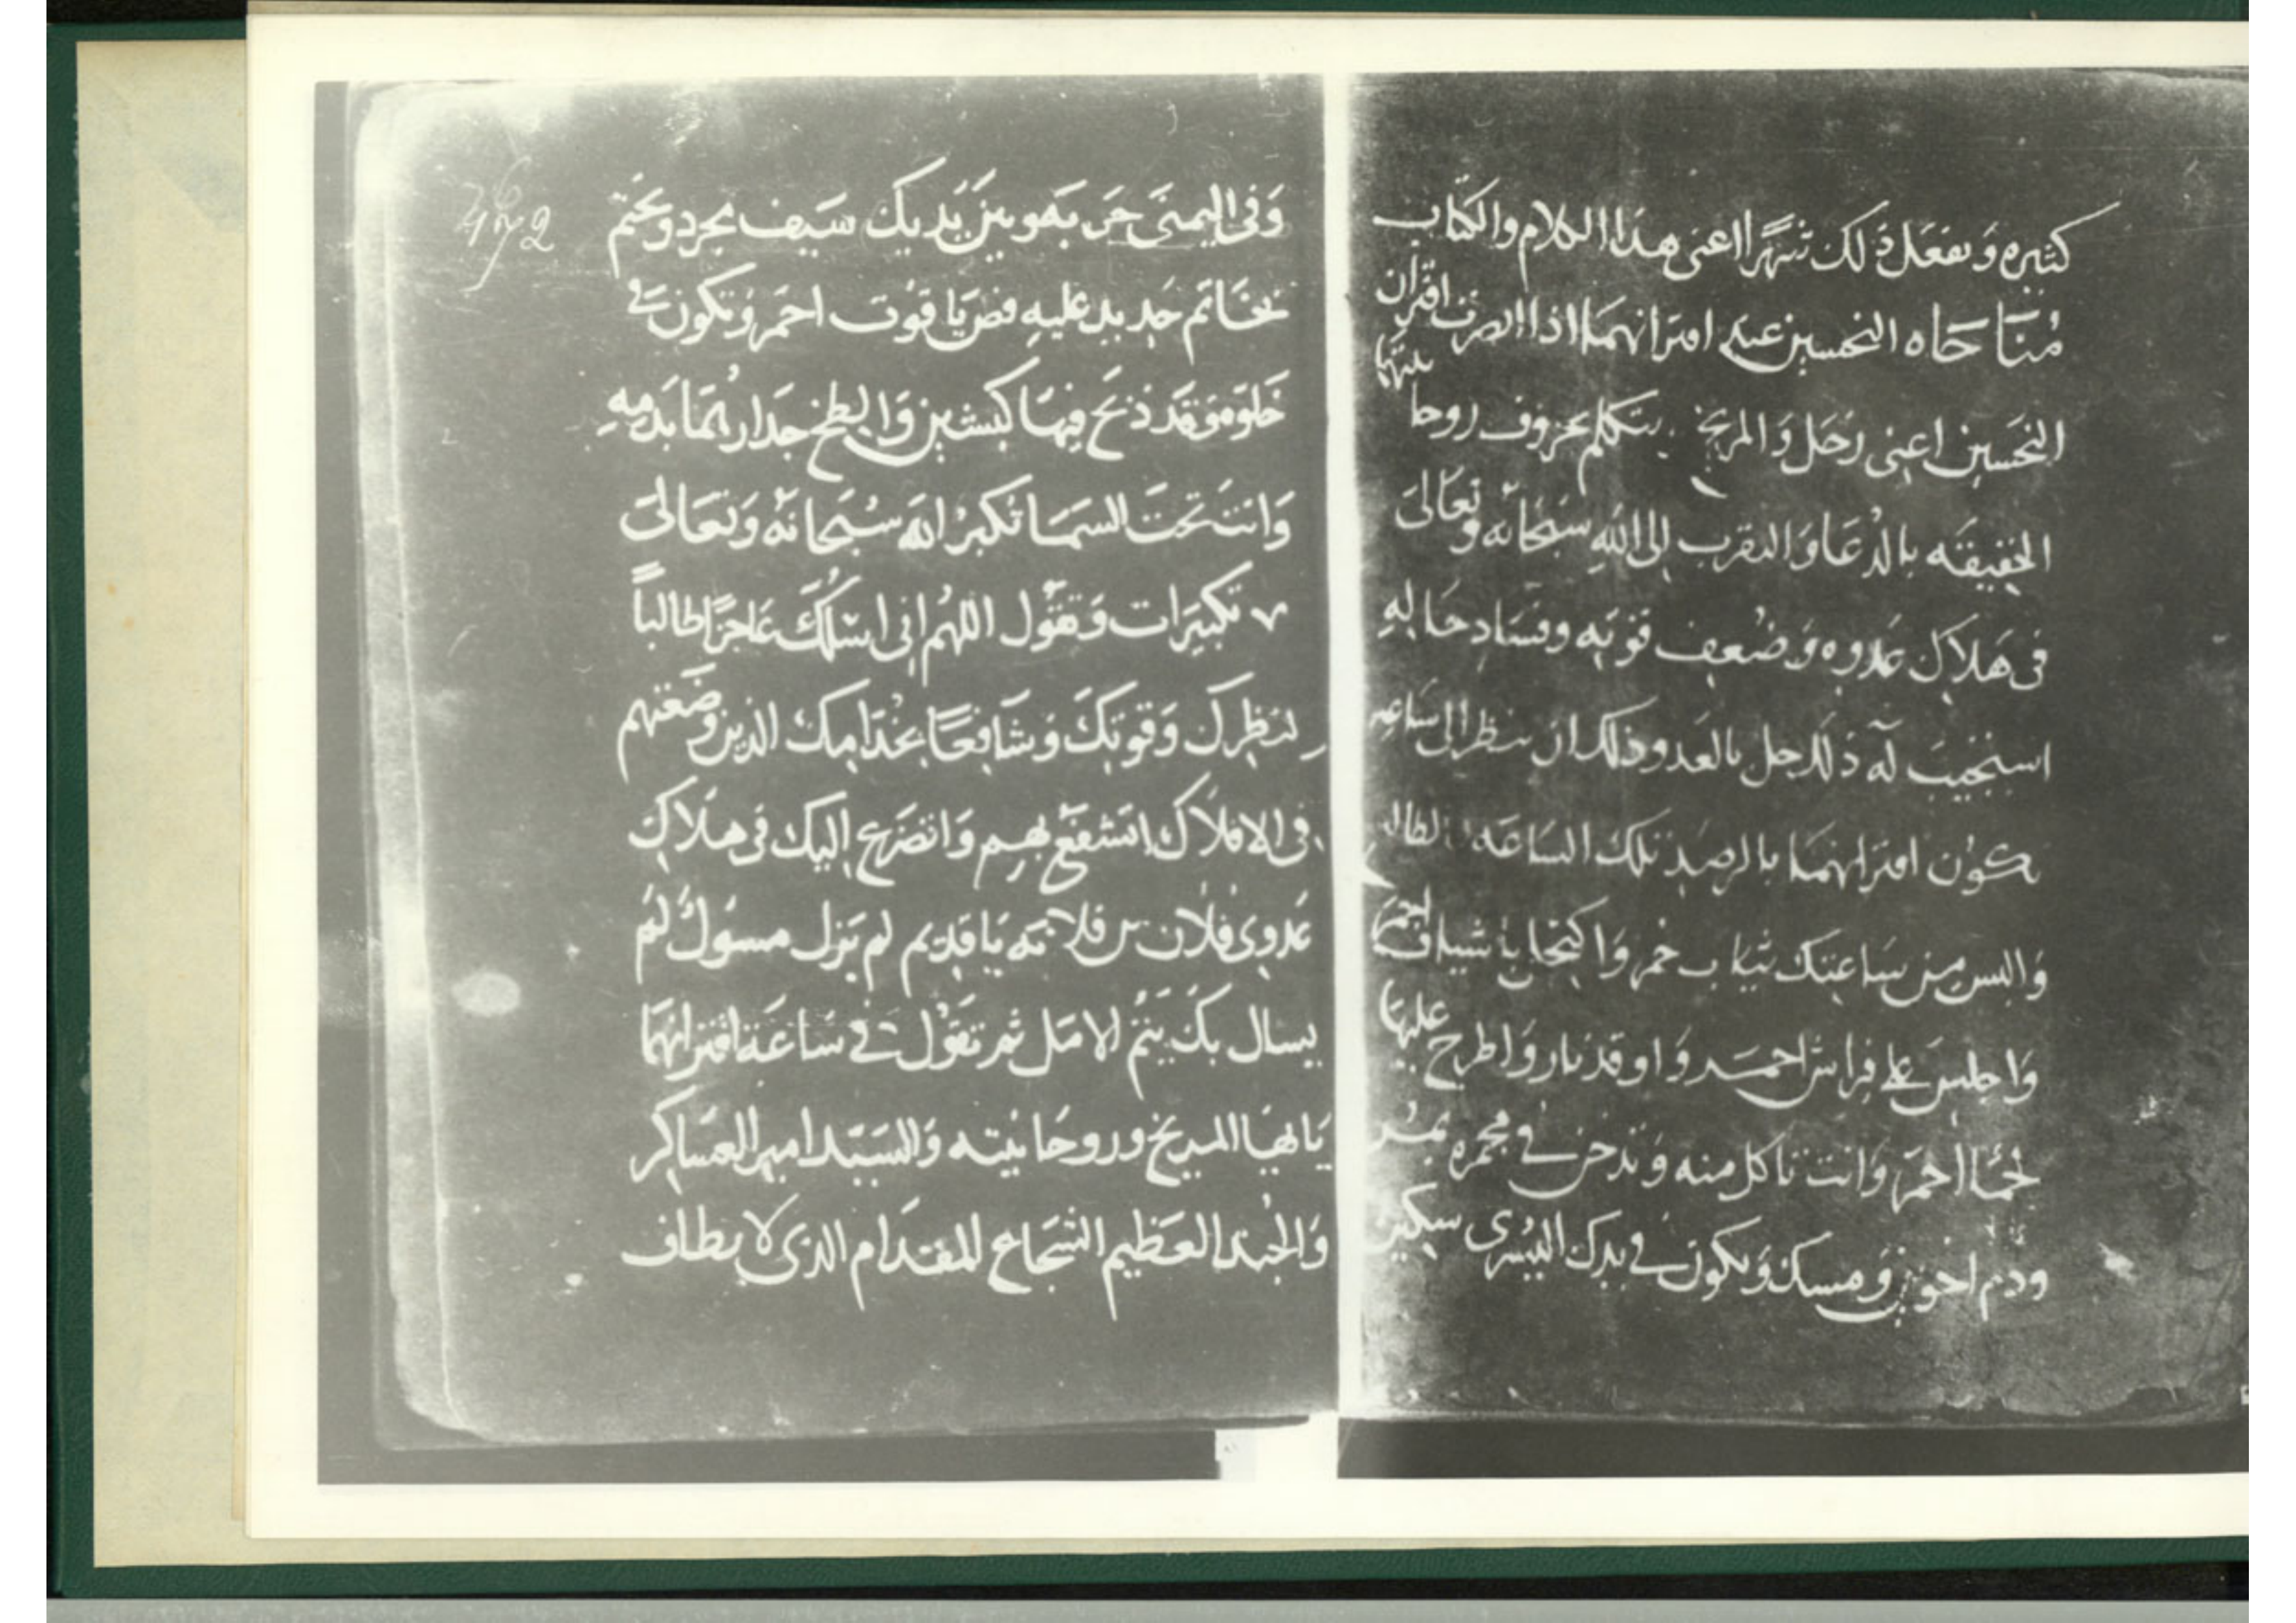 كثيره وتفعل ذلك شهرا اعنى هذا الكلام والكتاب
مناحاه النحسين عند اقترانهما اذا اقتران
النحسين اعنى زحل والمريخ يتكلم بحروف روحا نيتهما
الخفيفه بالدعا والتقرب الى الله سبحانه وتعالى
فى هلاك عدوه وضعف قوته وفساد حاله
استجيب له ذلك وحل بالعدو وذلك ان تنظر الى ساعه
يكون اقترانهما بالرصد تلك الساعه الطالع
والبس من ساعتك ثياب حمر واكتحل بأشياف احمر
واجلس على فراش احمر واوقد نار واطرح عليها
لحما احمر وانت تاكل منه وتدخن فى مجمره
ودم اخوين ومسك ويكون فى يدك اليسرى سكين
وفى اليمنى حربه وبين يديك سيف مجرد وتختم
بخاتم حديد عليه فص ياقوت احمر وتكون فى
خلوه وقد ذبح فيها كبشين والطخ جدارتها بدمه
وانت تحت السما تكبر الله سبحانه وتعالى
٧ تكبيرات وتقول اللهم انى اسئلك عاجزا طالبا
لنظرك وقوتك وشافعا بخدامك الذين وضعتهم
فى الافلاك استشفع بهم واتضرع اليك فى هلاك
عدوى فلان بن فلانه يا قديم لم يزل مسول لم
يسال بك يتم الامل ثم تقول فى ساعة اقترانهما
يايها المريخ وروحانيته والسيد امير العساكر
والجند العظيم الشجاع المقدام الذى لا يطاف
472